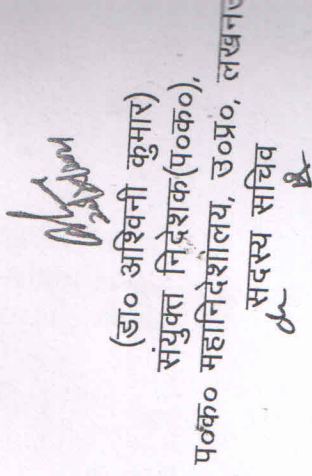 (डा० अश्विनी कुमार)
संयुक्त निदेशक(प०क०),
प०क० महानिदेशालय, उ०प्र०, लखनऊ
सदस्य सचिव